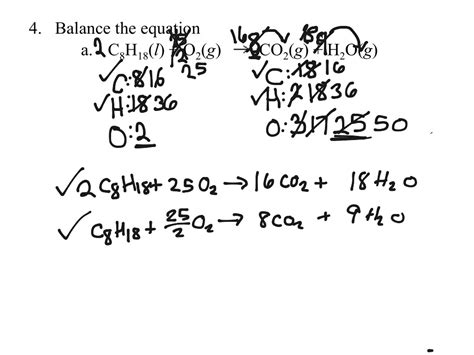 4. Balance the equation
a. 2 C₈H₁₈(l) + O₂(g) → CO₂(g) + H₂O(g)
25
✓C: 8 16
✓C: 1 8 16
✓H: 18 36
✓H: 2 18 36
O: 2
O: 3 17 25 50
✓ 2 C₈H₁₈ + 25 O₂ → 16 CO₂ + 18 H₂O
✓ C₈H₁₈ + 25/2 O₂ → 8CO₂ + 9 H₂O